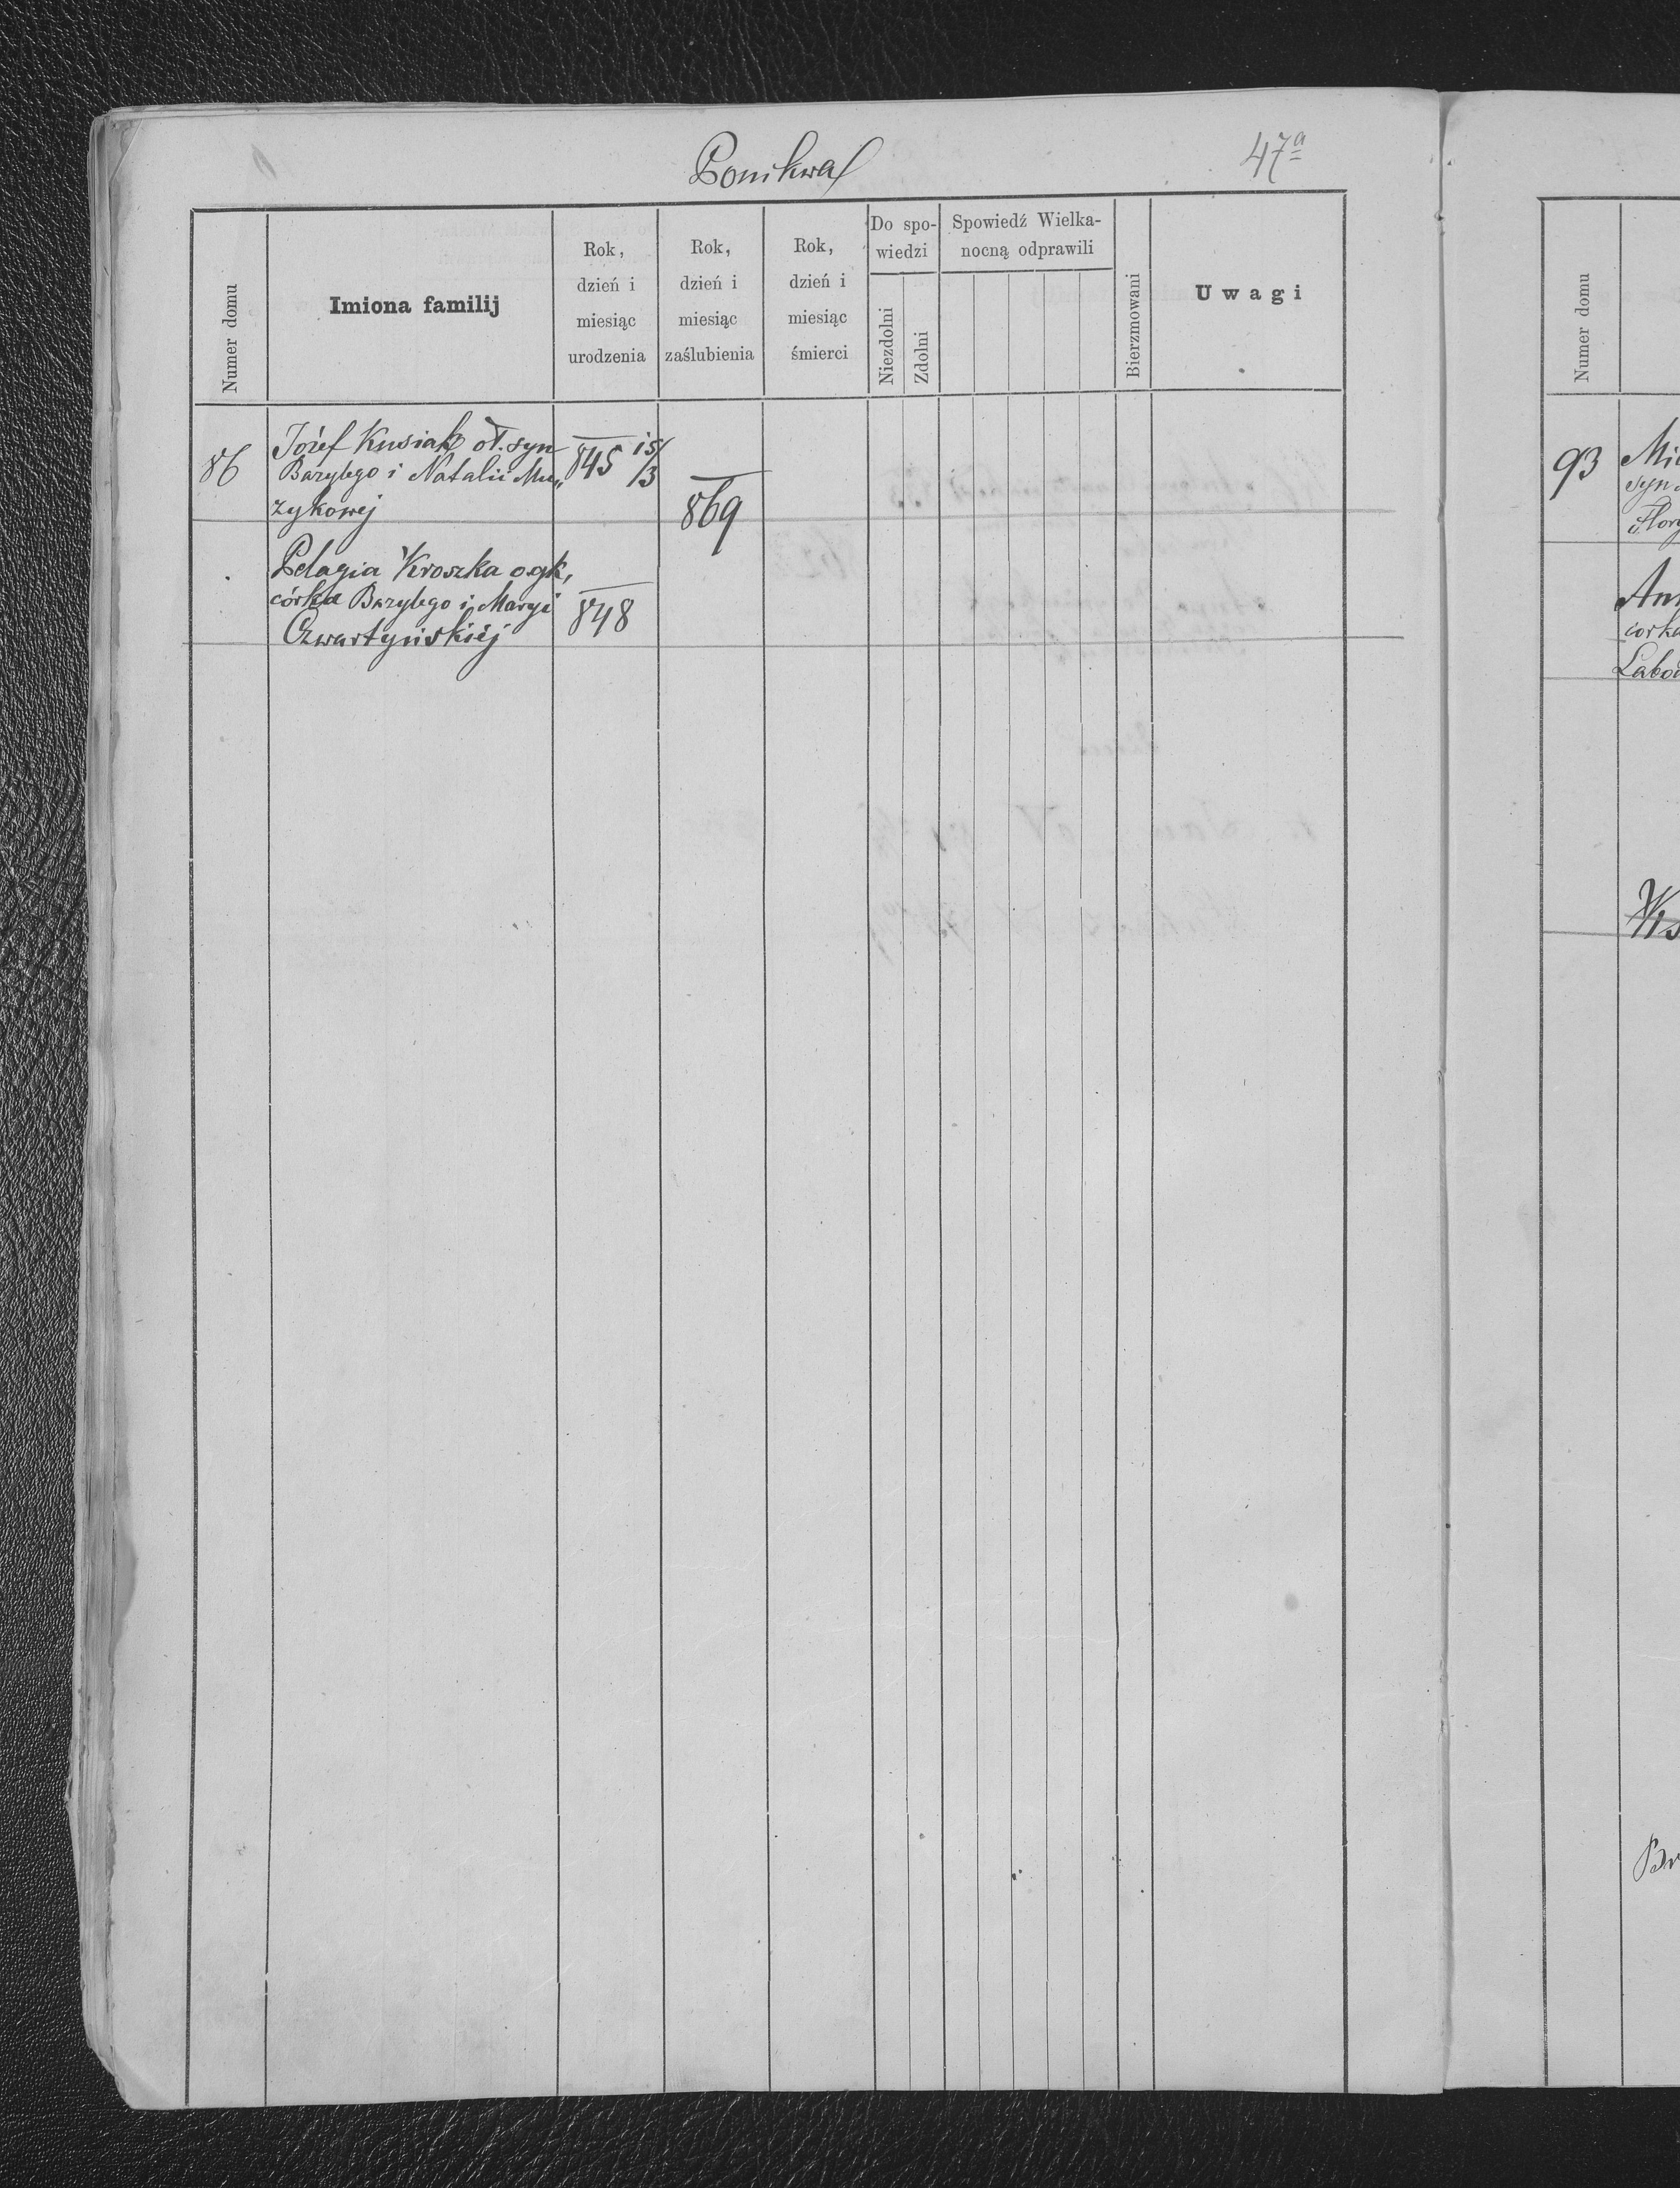 Ponikwa
47a
Numer domu
Imiona familij
Rok,
dzień i
miesiąc
urodzenia
Rok,
dzień i
miesiąc
zaślubienia
Rok,
dzień i
miesiąc
śmierci
Do spo-
wiedzi
Niezdolni
Zdolni
Spowiedź Wielka-
nocną odprawili
Bierzmowani
Uwagi
86
Józef Kusiak oł. syn
Bazylego i Natalii Mu„
zykowej
845 15/3
869
Pelagia Kroszka o.gk,
córka Bazylego i Maryi
Czwartyńskiéj
848
Numer domu
93
syn
corka